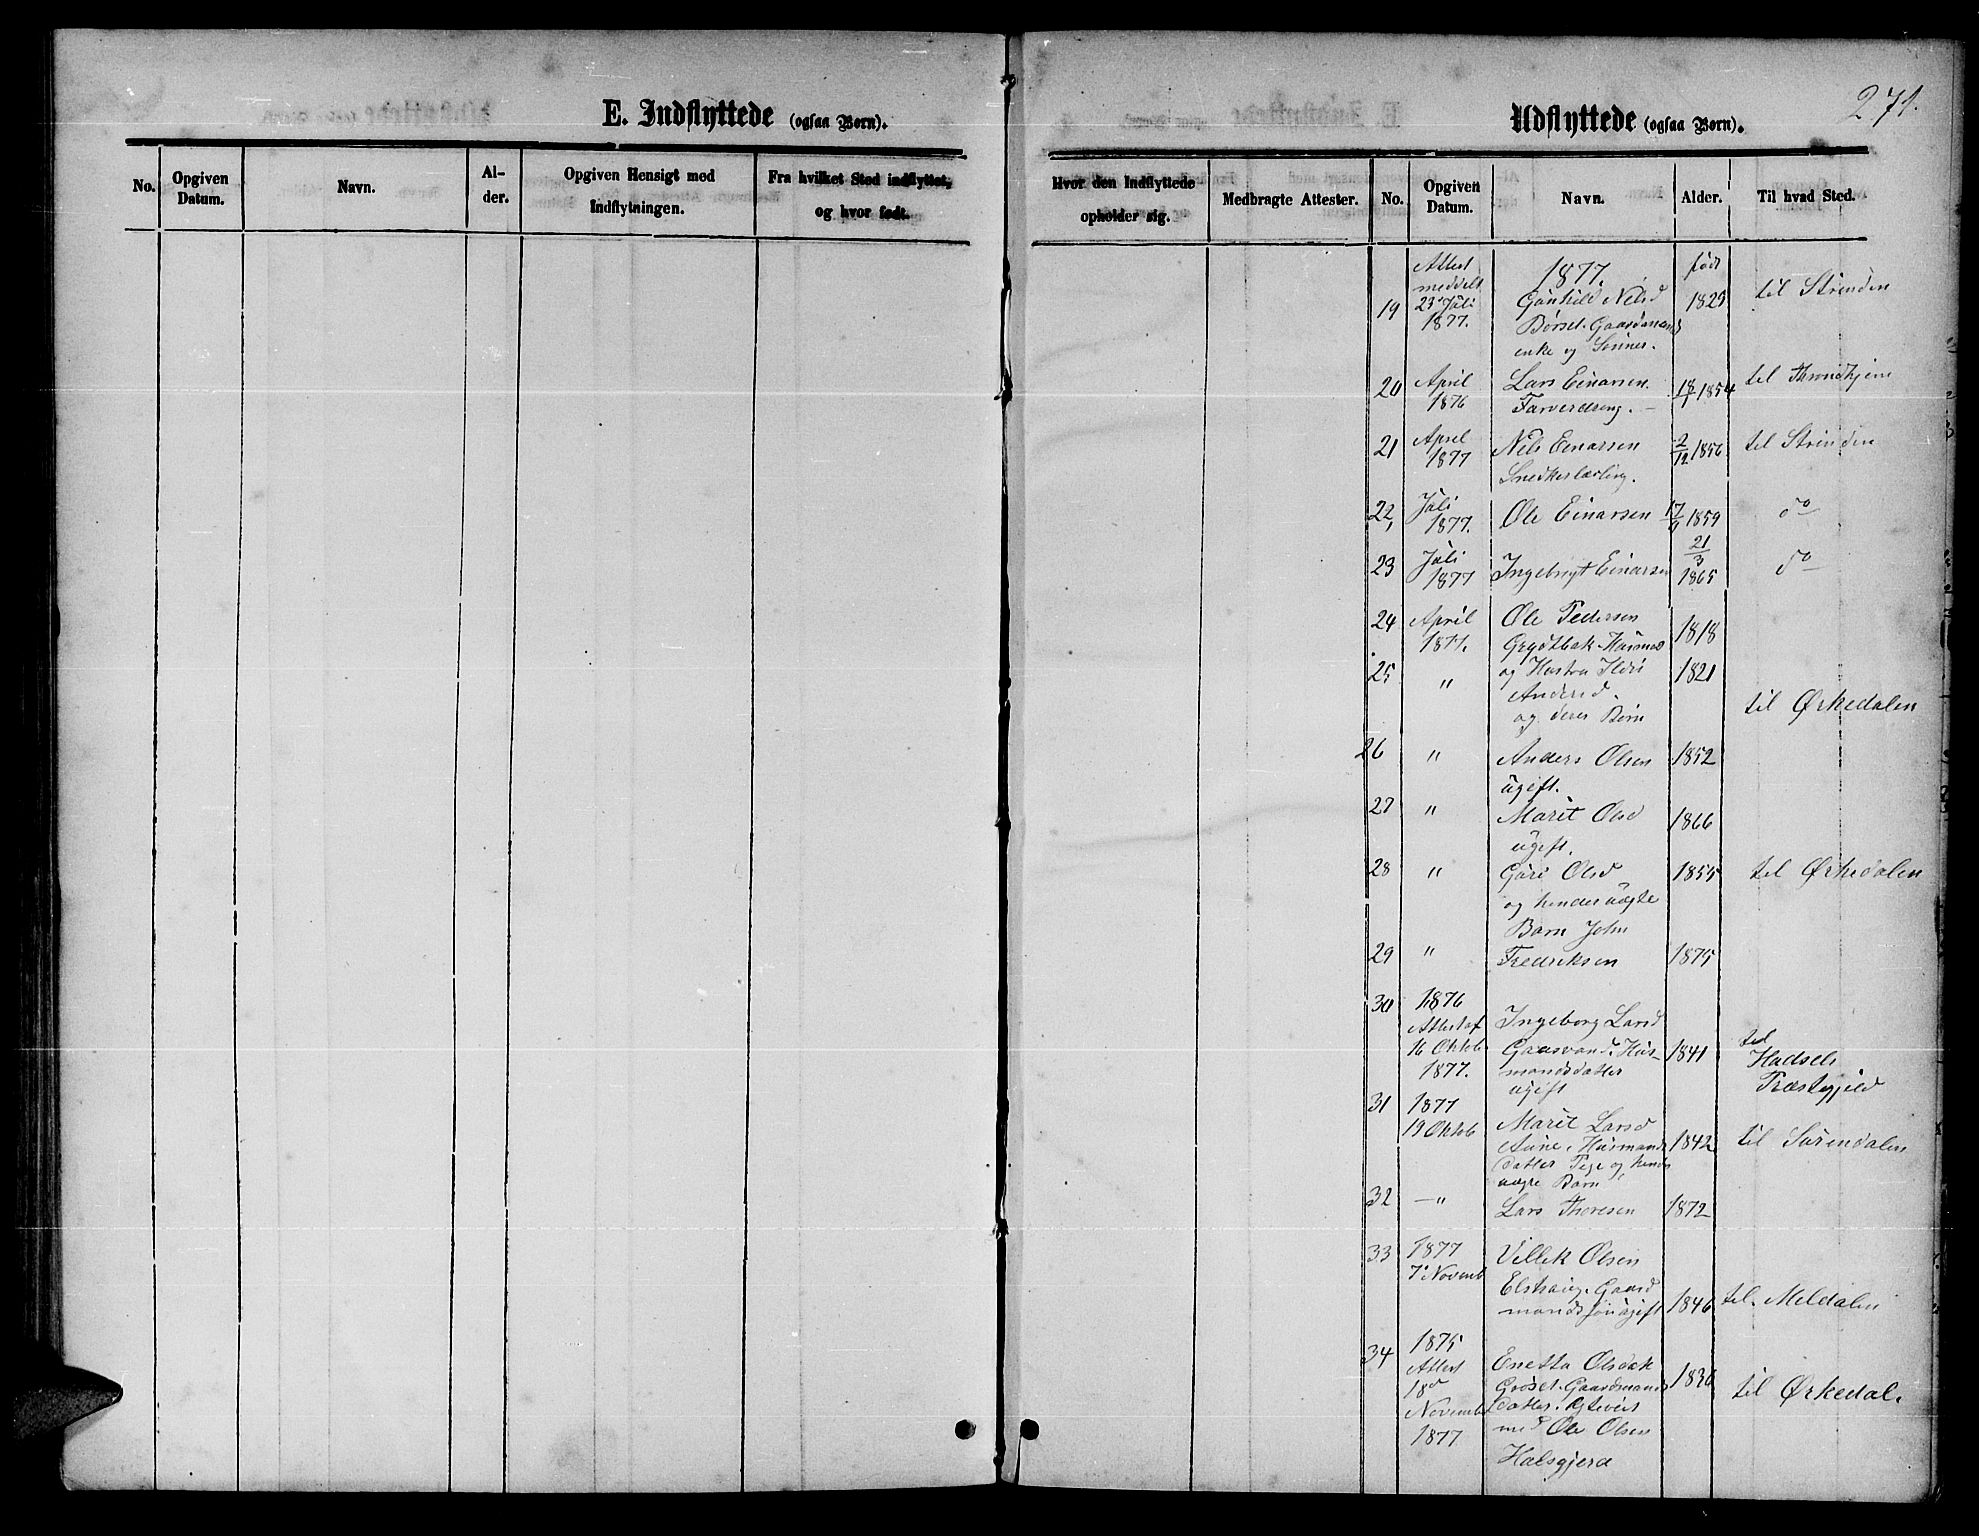 E. Indflyttede (ogsaa Børn).
No.
Opgiven Datum.
Navn.
Al-
der.
Opgiven Hensigt med
Indflytningen.
Fra hvilket Sted indflyttet,
og hvor født.
271.
Udflyttede (ogsaa Børn).
Hvor den Indflyttede
opholder sig.
Medbragte Attester.
No.
Opgiven
Datum.
Navn.
Alder.
Til hvad Sted.
Attest
meddelt 1877. født
19 23de Juli Gunhild Nilsd 1825 til Strinden
1877. Børset. Gaardmand
enke og Sønner.
20 April Lars Einarsen 18/1 1854 til Throndhjem
1876 Farverdreng.
21 April Nils Einarsen 2/12 1856 til Strinden
1877 Snedkerlærling.
22, Juli Ole Einarsen 17/6 1859 do
1877.
23 Juli Ingebrigt Einarsen 21/3 do
1877 1865
24 April Ole Pedersen 1818
1877. Grøtbak. Husmd
25 " og Hustru Ildri 1821
Andersd.
og deres Børn til Ørkedalen
26 " Anders Olsen 1852
ugift.
27 " Marit Olsd 1866
ugift.
28 " Guri Olsd 1855 til Ørkedalen
og hendes uægte
Barn John
29 " Fredriksen 1875
30 1876 Ingeborg Larsd
Attest af Gaasvand. Hus- 1841 til
16 Oktob mandsdatter Hadsels
1877. ugift Præstegjeld
31 1877 Marit Larsd
19 Oktob Aune. Husmands 1842 til Surendalen
datter Pige og hends
uægte Barn
32 —" Lars Thoresen 1872
33 1877 Villik Olsen
7de Novemb Gaard
mands søn ugift 1846 til Meldalen
34 1875
Attest Enetta Olsdak 1836 til Ørkedal.
18de Gaardmands
Novemb datter.
1877 med Ole Olsen
Halsgjerd